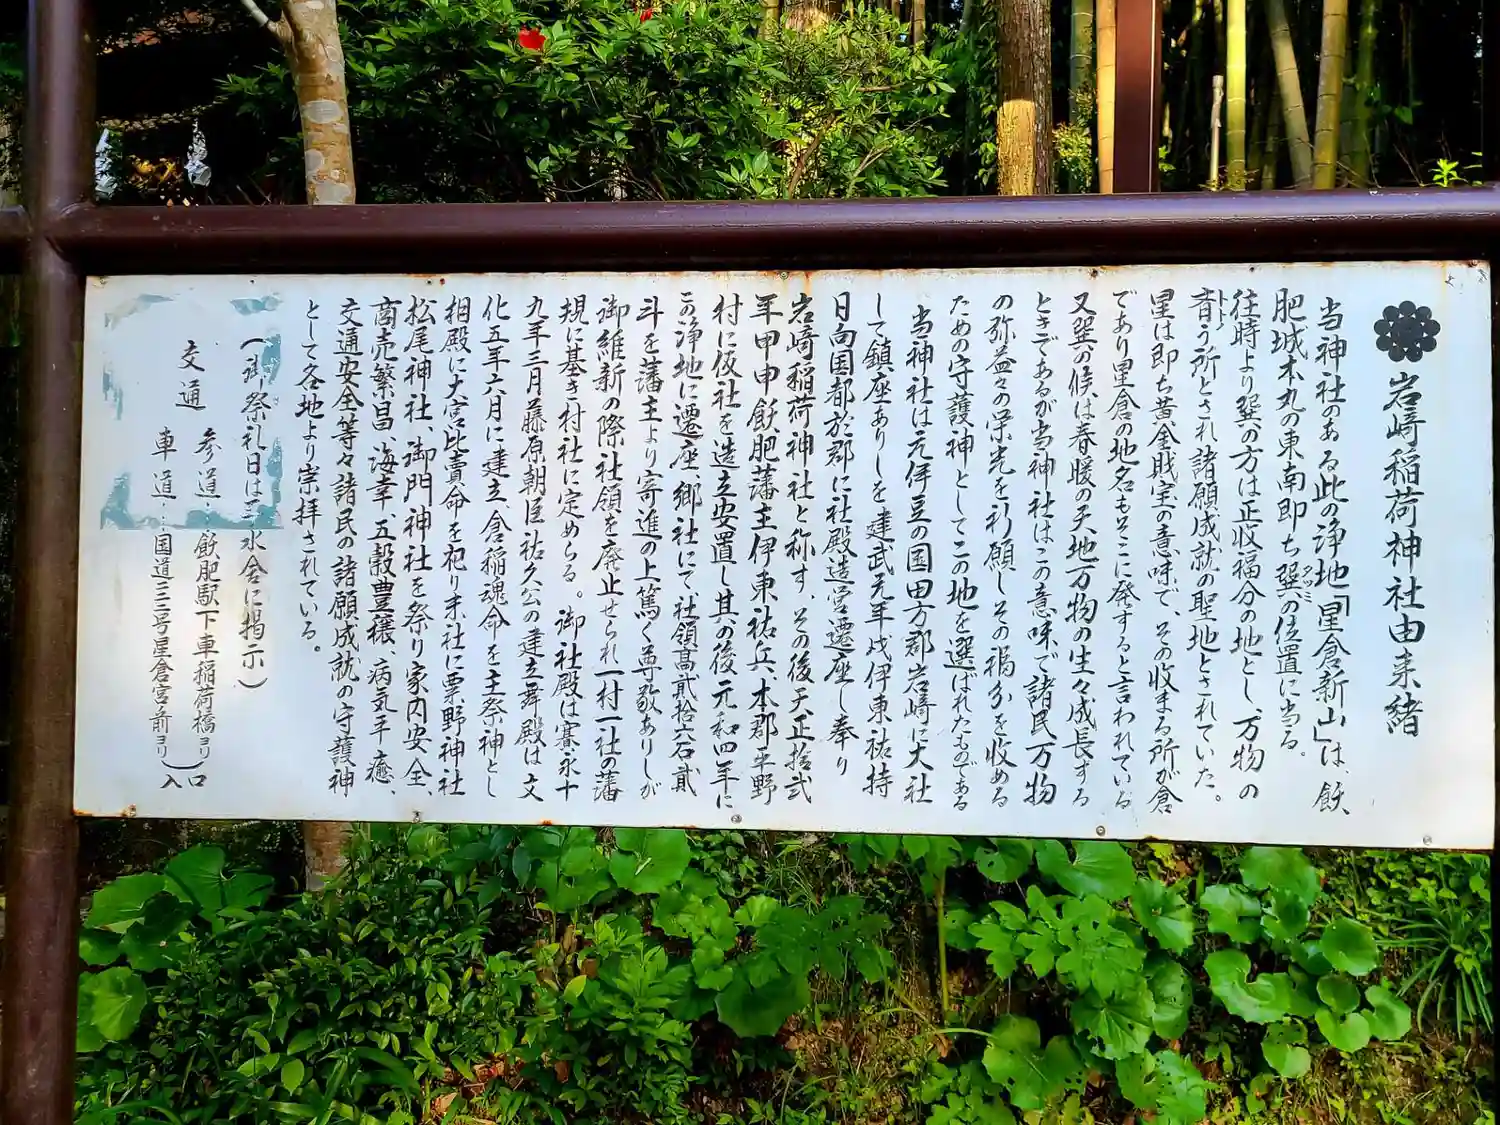 岩﨑稲荷神社由来緒
当神社のある此の浄地「星倉新山」は、飫
肥城本丸の東南即ち巽の位置に当る。
タツミ
往時より巽の方は正収福分の地とし、万物の
斉う所とされ諸願成就の聖地とされていた。
トトノ
星は即ち黄金財宝の意味で、その収まる所が倉
であり星倉の地名もそこに発すると言われている
又巽の候は春暖の天地万物の生々成長する
ときであるが当神社はこの意味で諸民万物
の弥益々の栄光を祈願しその禍分を収める
ための守護神としてこの地を選ばれたものである
当神社は元伊豆の国田方郡岩﨑に大社
して鎮座ありしを建武元年戌伊東祐持
日向国都於郡に社殿造営遷座し奉り
岩﨑稲荷神社と称す、その後天正拾弐
年甲申飫肥藩主伊東祐兵、本郡平野
村に仮社を造立安置し其の後元和四年に
この浄地に遷座、郷社にて、社領高弐拾六石弐
斗を藩主より寄進の上篤く尊敬ありしが
御維新の際社領を廃止せられ一村一社の藩
規に基き村社に定めらる。御社殿は寛永十
九年三月藤原朝臣祐久公の建立舞殿は文
化五年六月に建立、倉稲魂命を主祭神とし
相殿に大宮比売命を祀り末社に粟野神社
松尾神社、御門神社を祭り家内安全、
商売繁昌、海幸、五穀豊穣、病気平癒、
交通安全等々諸民の諸願成就の守護神
として各地より崇拝されている。
(御祭礼日は手水舎に掲示)
交通 参道…飫肥駅下車稲荷橋ヨリ
車道…国道二二二号星倉宮前ヨリ
)入口